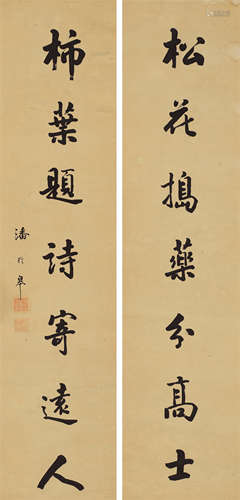 松花搗藥分高士
柿葉題詩寄遠人
潘齡皋